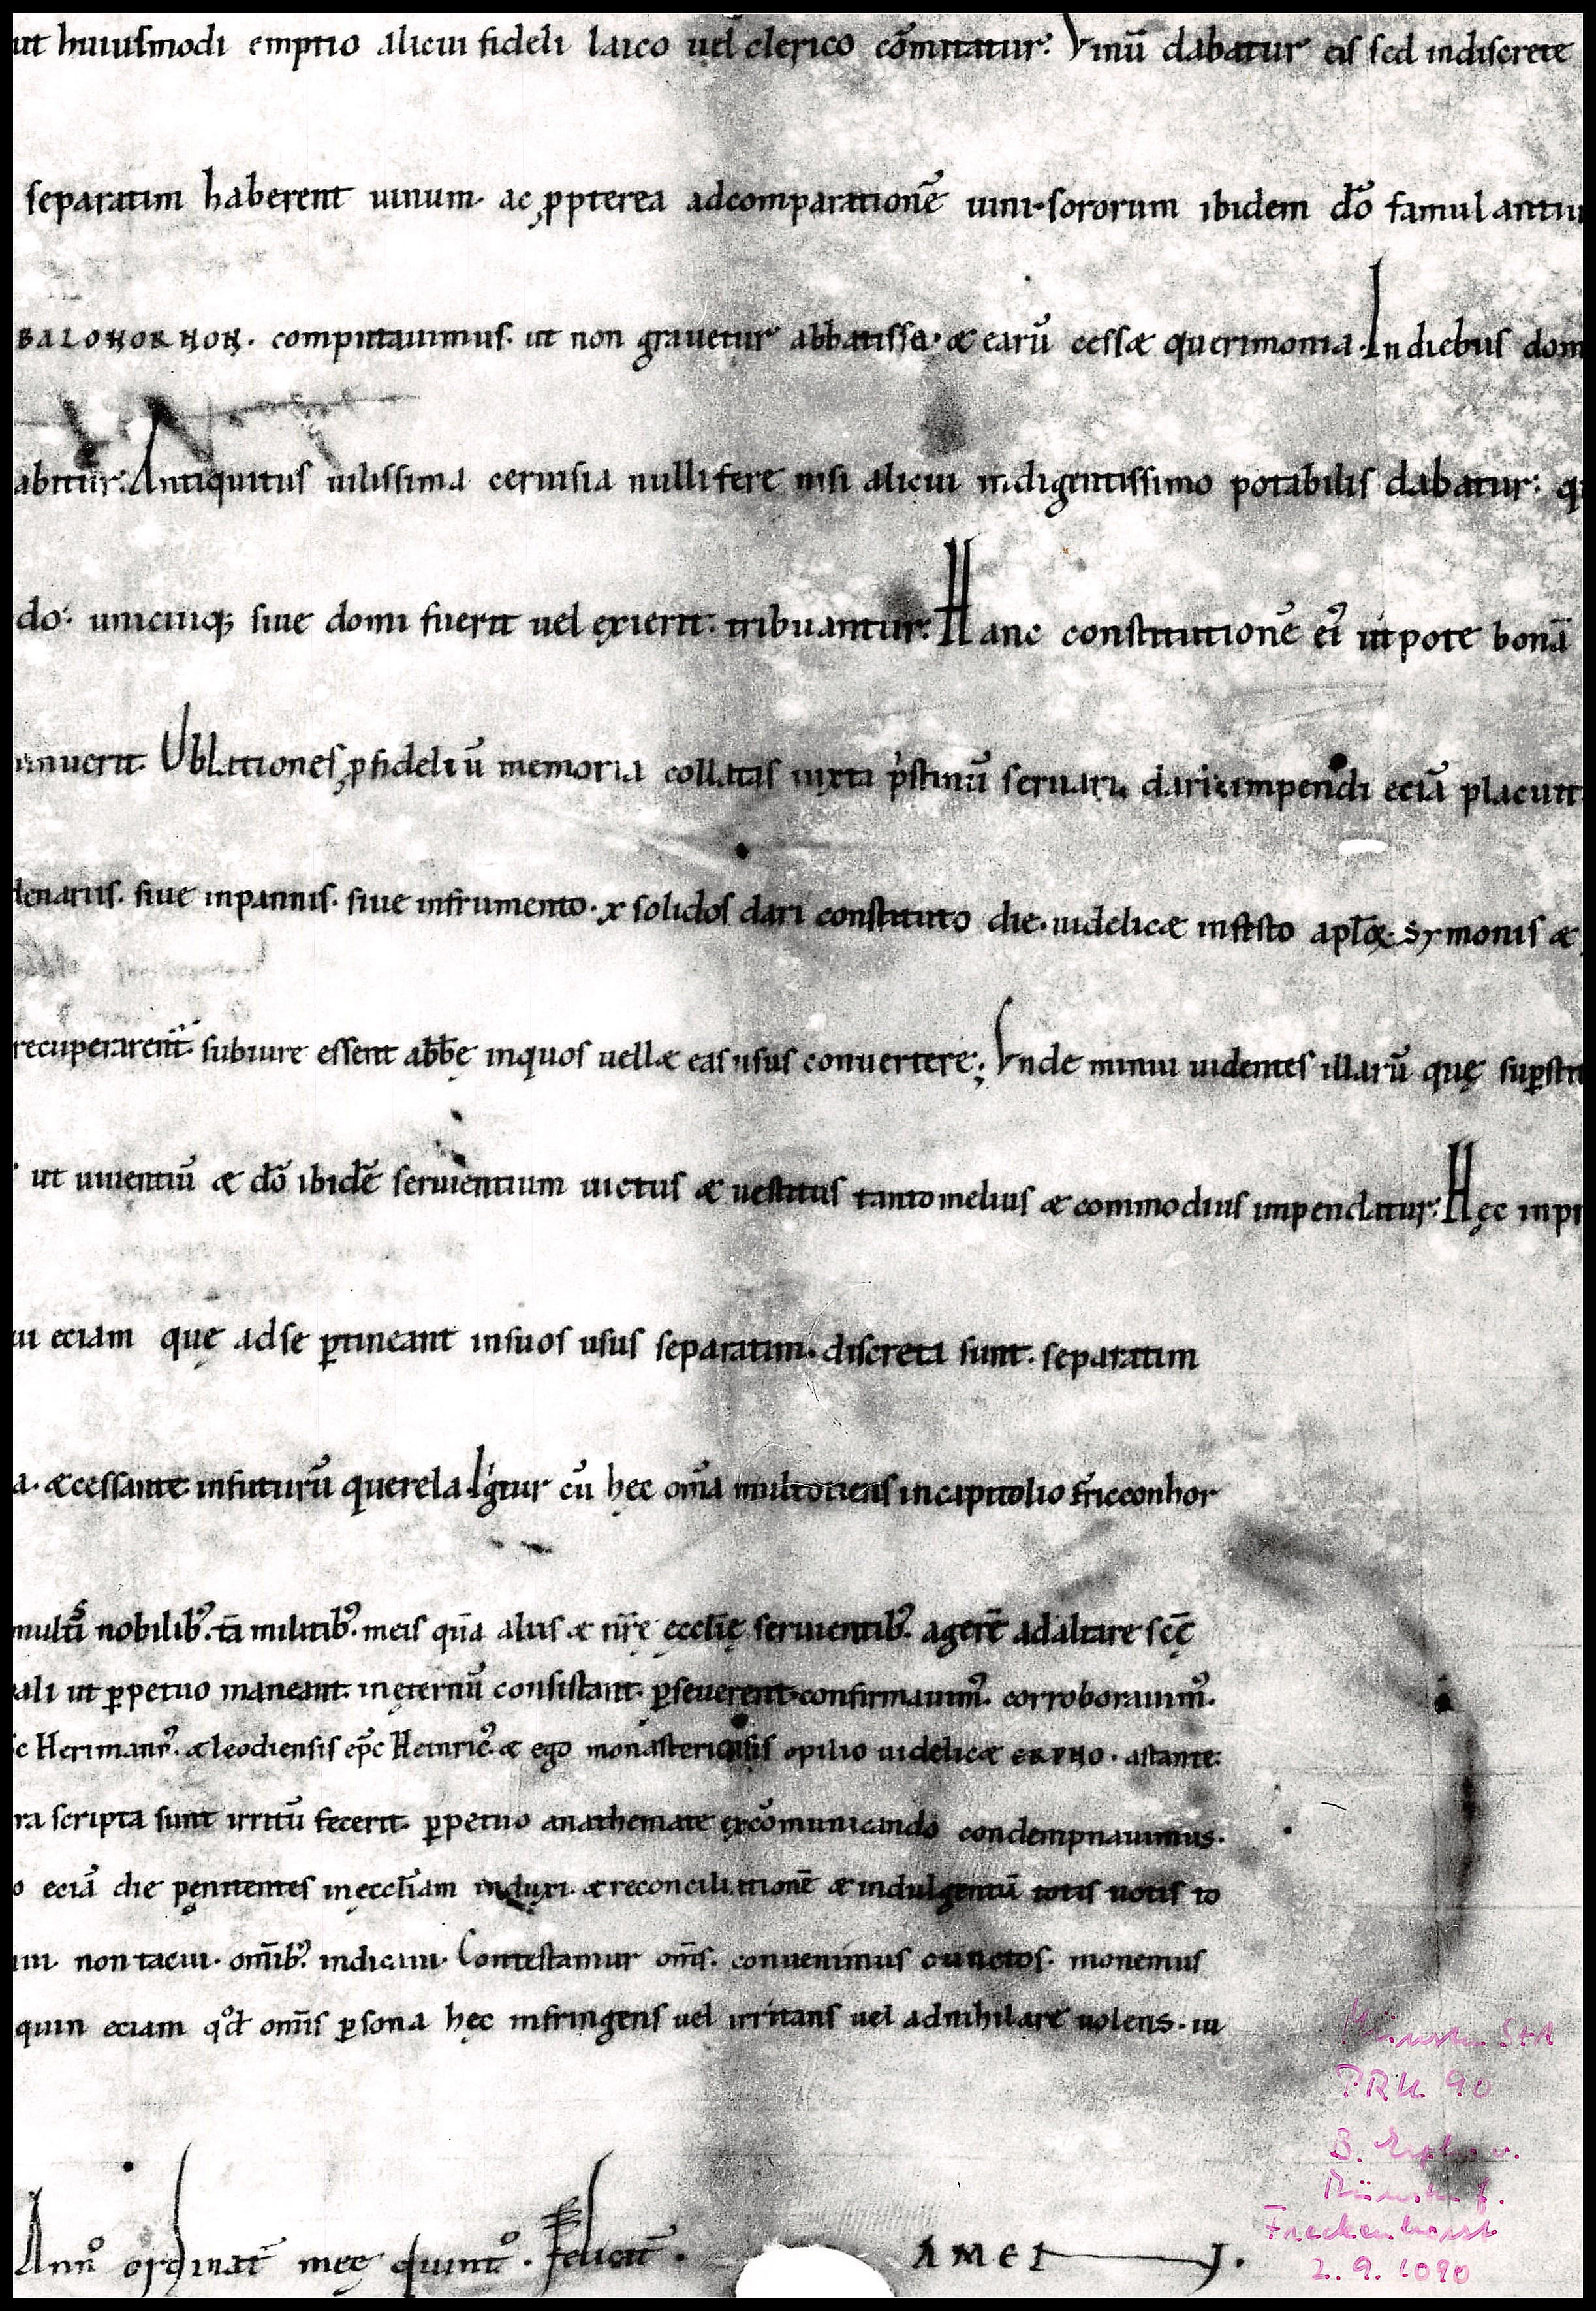 ut huiusmodi emptio alicui fideli laico uel clerico cōmittatur. Vinū dabatur eis sed indiscrete
separatim haberent uinum. ac ꝓpterea adcomparationē uini sororum ibidem dō famulantiu
BALOHORNON. computauimus. ut non grauetur abbatissa. æ earū cessæ querimonia. In diebus dom
abitur. Antiquitus uilissima ceruisia nulli fere nisi alicui indigentissimo potabilis dabatur: q
do. unicuiq; siue domi fuerit uel exierit. tribuantur. Hanc constitutionē ei᾽ utpote bonā
nuerit. Oblationes ꝓ fideliū memoria collatas iuxta p̓stinū seruari, dari. impendi eciā placuit
denariis. siue inpannis. siue infrumento. x solidos dari constituto die. uidelicæ infesto apl̄oꝝ Symonis æ
recuperarent. subiure essent abb̄ę inquos uellæ eas usus conuertere; Vnde minui uidentes illarū quę suꝑstit
ut uiuentiū æ dō ibidē seruientium uictus æ uestitus tantomelius æ commodius impendatur. Hęc inpr
ui eciam quę adse ꝑtineant insuos usus separatim. discreta sunt. separatim
a. æcessante infuturū querela. Igitur cū hęc om̄a multotiens incapitolio fricconhor
multi᾽ nobilib᾽. tā militib᾽. meis quā aliis æ nr̄ę ęccl̄ię seruientib᾽. agerē adaltare scē
ali ut ꝑpetuo maneant. inęternū consistant. ꝑseuerent. confirmauim᾽. corroborauim᾽.
c Herimann᾽. æ leodiensis ep̄c Heinric᾽. æ ego monasteriensis opilio uidelicæ ERPHO. astante.
ra scripta sunt irritū fecerit. ꝑpetuo anathemate excōmunicando condempnauimus.
o eciā die pęnitentes inęccl̄iam induxi. æ reconciliationē æ indulgentiā totis uotis to
ui. non tacui. om̄ib᾽. indicaui. Contestamur om̄s. conuenimus cunctos. monemus
quin eciam qd̄ om̄is ꝑsona hęc infringens uel irritans uel adnihilare uolens. iu
Anno ordinat̄ męę quinto. Feliciт̄. AMEN.
Münster StA
PRU 90
B. Erpho v.
Münster f.
Freckenhorst
2. 9. 1090